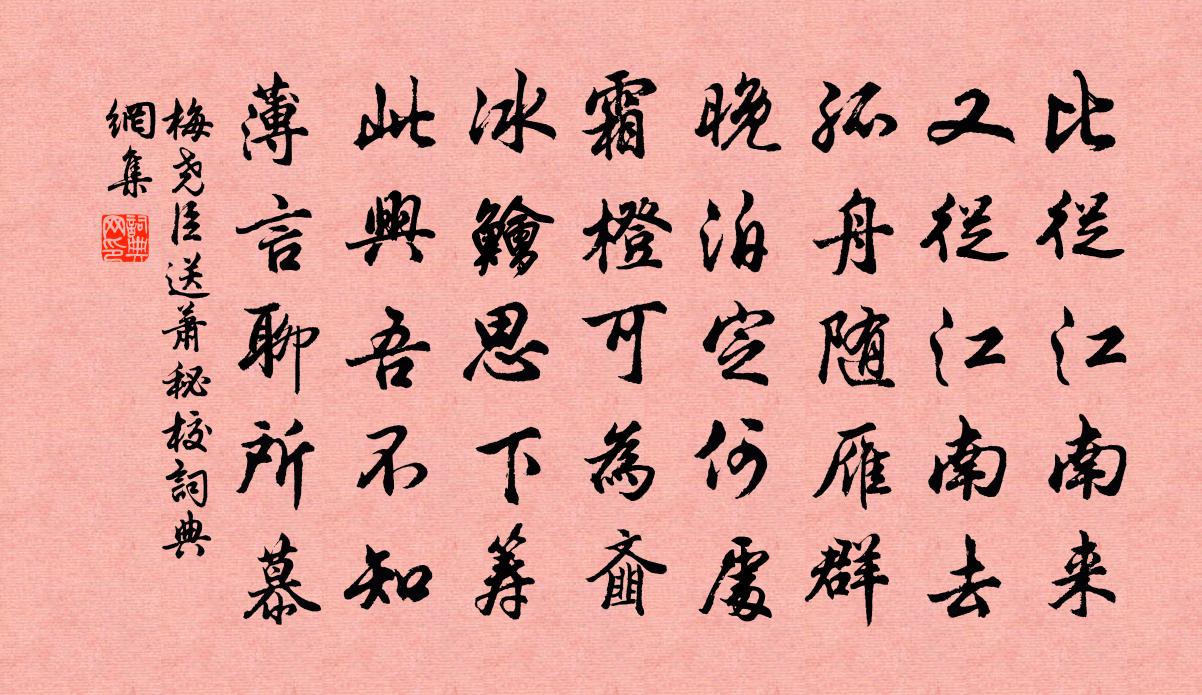 比從江南来
又從江南去
孤舟随雁群
晚泊定何處
霜橙可為齑
冰鱠思下箸
此興吾不知
薄言聊所慕
梅尧臣送蕭秘校詞典
網集
詞典
网印